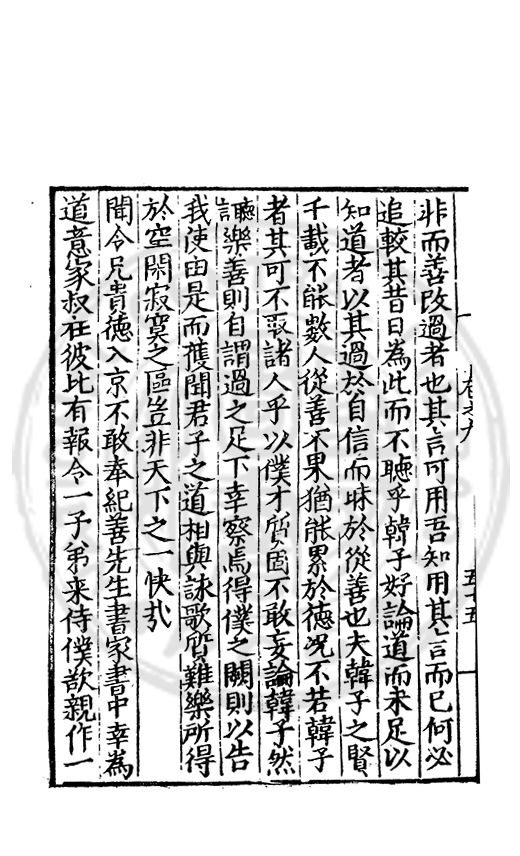 非而善改過者也其言可用吾知用其言而已何必
追較其昔日為此而不聽乎韓子好論道而未足以
知道者以其過於自信而昧於從善也夫韓子之賢
千載不能數人從善不果猶能累於德況不若韓子
者其可不取諸人乎以僕才質固不敢妄論韓子然
聽樂善則自謂過之足下幸察焉得僕之闕則以告
我使由是而獲聞君子之道相與詠歌質難樂所得
於空閑寂寞之區豈非天下之一快哉
聞令兄貴徳入京不敢奉紀善先生書家書中幸為
道意家叔在彼比有報令一子弟来侍僕欲親作一
五十五